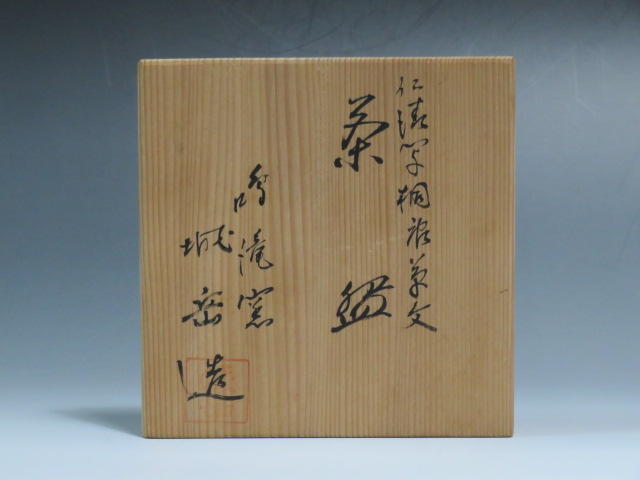 仁清写桐唐草文
茶盌
鳴滝窯
城岳造